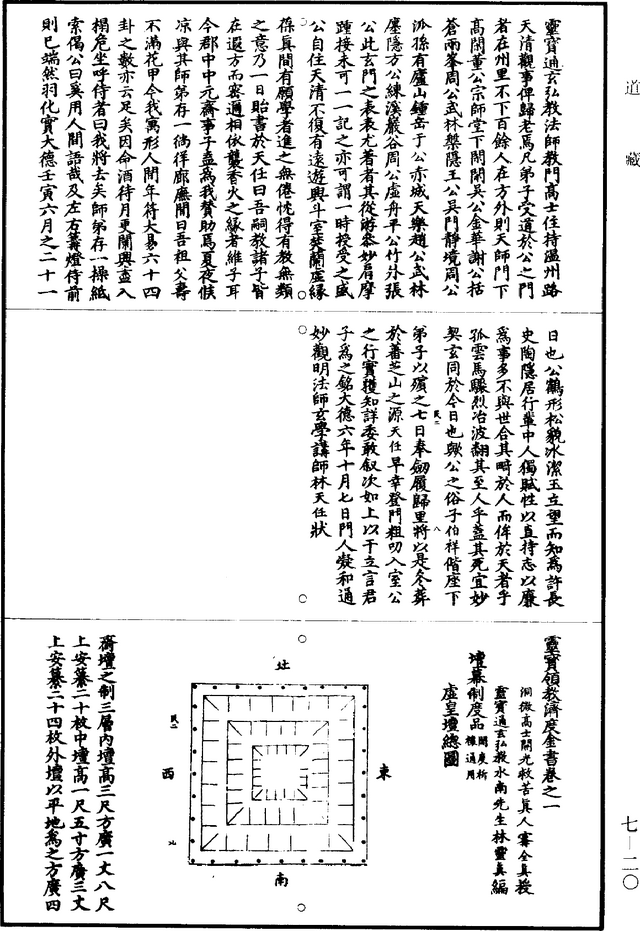 道藏
靈寶通玄弘教法師教門高士住持溫州路
天清觀事俾歸老焉凡弟子受道於公之門
者在州里不下百餘人在方外則天師門下
高閑董公宗師堂下閑閑吳公金華謝公括
蒼兩峯周公武林槃隱王公吳門靜境周公
派孫有廬山鍾岳于公赤城天樂趙公武林
廛隱方公練溪巖谷周公虛舟平公竹外張
公此玄門之表表尤著者其從游參妙肩摩
踵接未可一一記之亦可謂一時授受之盛
公自住天清不復有遠遊興斗室焚蘭虛緣
葆真間有願學者進之無倦忱得有教無類
之意乃一日貽書於天任曰吾嗣教諸子皆
在遐方而密邇相依襲香火之緣者維子耳
今郡中中元齋事子盍為我贊助焉夏夜候
凉與其師弟存一徜徉廊廡間曰吾祖父壽
不滿花甲今我寓形人間年符大易六十四
卦之數亦云足矣因命酒待月更闌興盡入
榻危坐呼侍者曰我將去矣師弟存一操紙
索偈公曰奚用人間語哉及左右篝燈侍前
則已端然羽化實大德壬寅六月之二十一
日也公鶴形松貌冰潔玉立望而知為許長
史陶隱居行輩中人獨賦性以直持志以廉
為事多不與世合其畸於人而侔於天者乎
孤雲馬驟烈冶波翻其至人乎蓋其死宜妙
契玄同於今日也歟公之俗子伯祥偕座下
弟子以殯之七日奉劒履歸里將以是冬葬
於蕃芝山之源天任早幸登門粗叨入室公
之行實穫知詳委敢叙次如上以干立言君
子為之銘大德六年十月七日門人凝和通
妙觀明法師玄學講師林天任狀
靈寶領教濟度金書卷之一
洞微高士開光救苦真人甯全真授
靈寶通玄弘教水南先生林靈真編
壇幕制度品開度祈禳通用
虛皇壇總圖
北
東
西
南
齋壇之制三層內壇高三尺方廣一丈八尺
上安纂二十枚中壇高一尺五寸方廣三丈
上安纂二十四枚外壇以平地為之方廣四
七—二〇